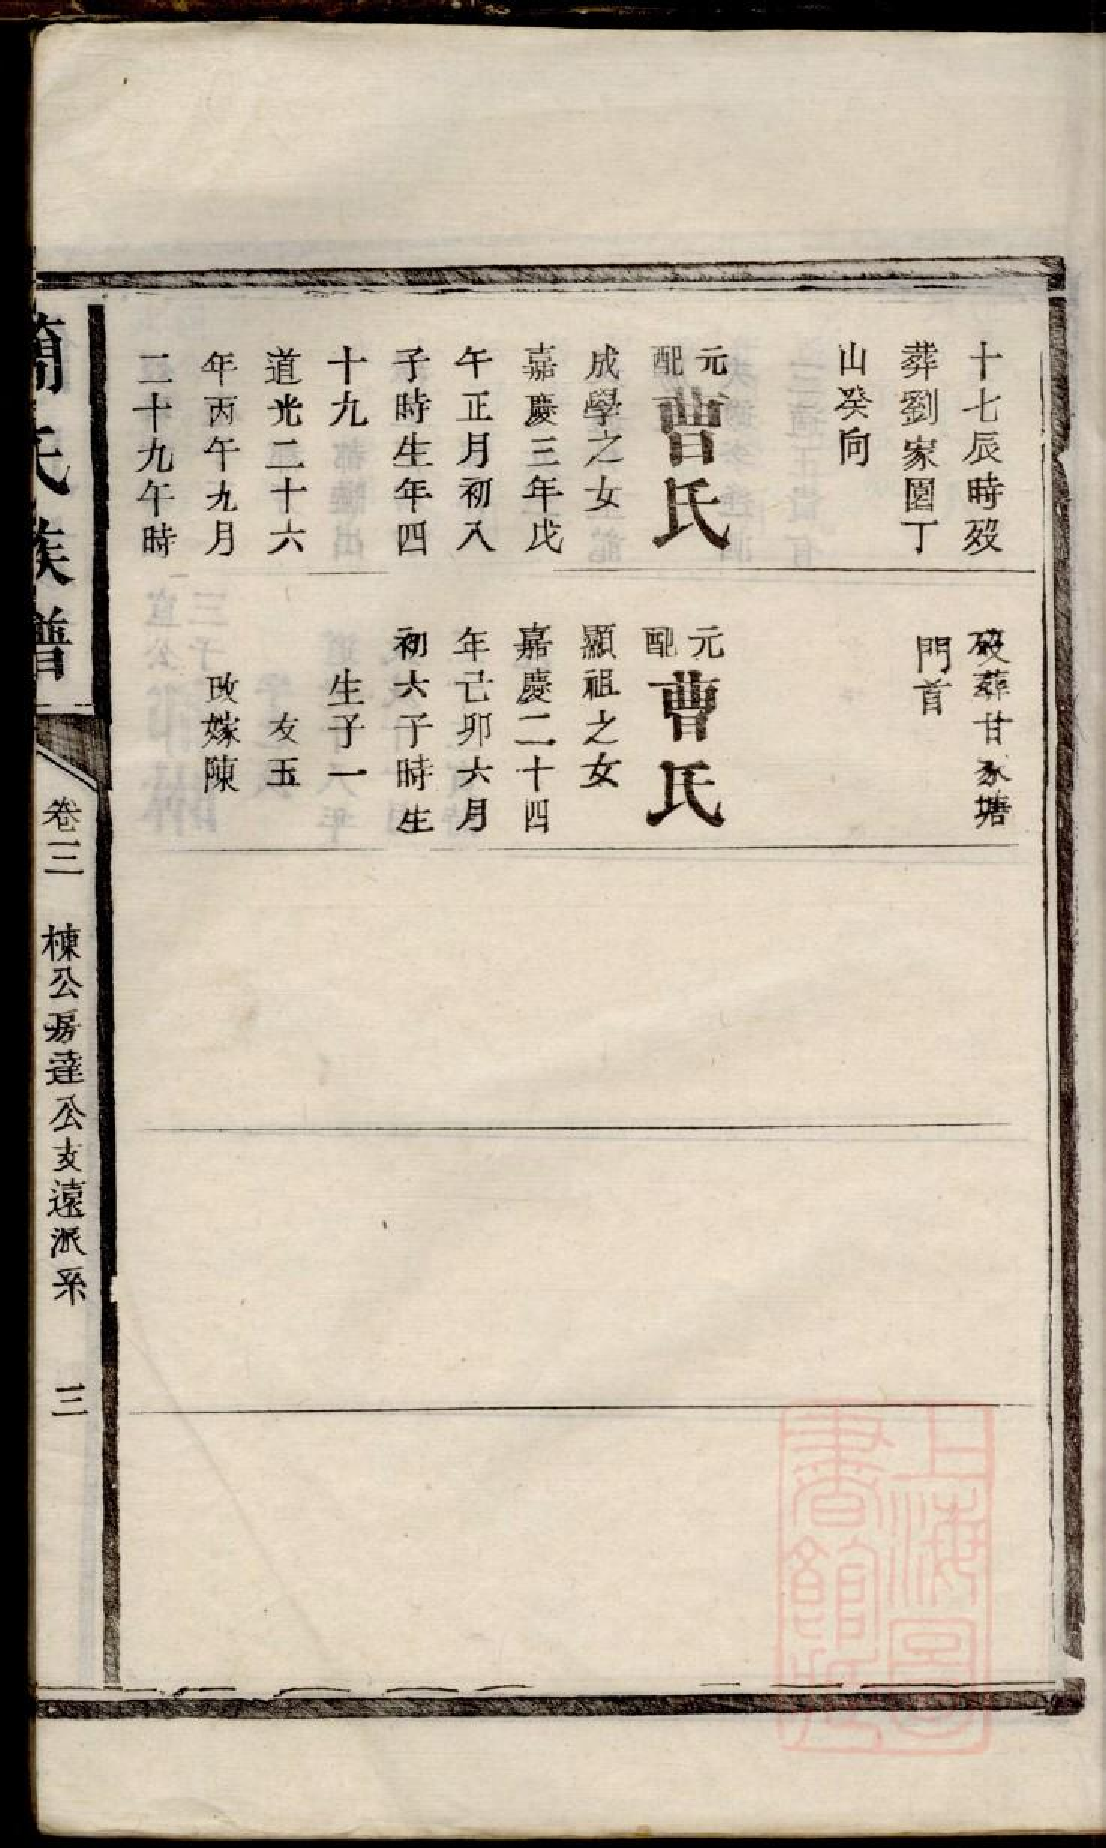 十七辰時歿
葬劉家園丁
山癸向
元配曹氏
成學之女
嘉慶三年戊
午正月初八
子時生年四
十九
道光二十六
年丙午九月
二十九午時
歿葬甘家塘
門首
元配曹氏
顯祖之女
嘉慶二十四
年己卯六月
初六子時生
生子一
友玉
改嫁陳
簡氏族譜
卷三 棟公房達公支遠派系 三
上海圖
書館藏